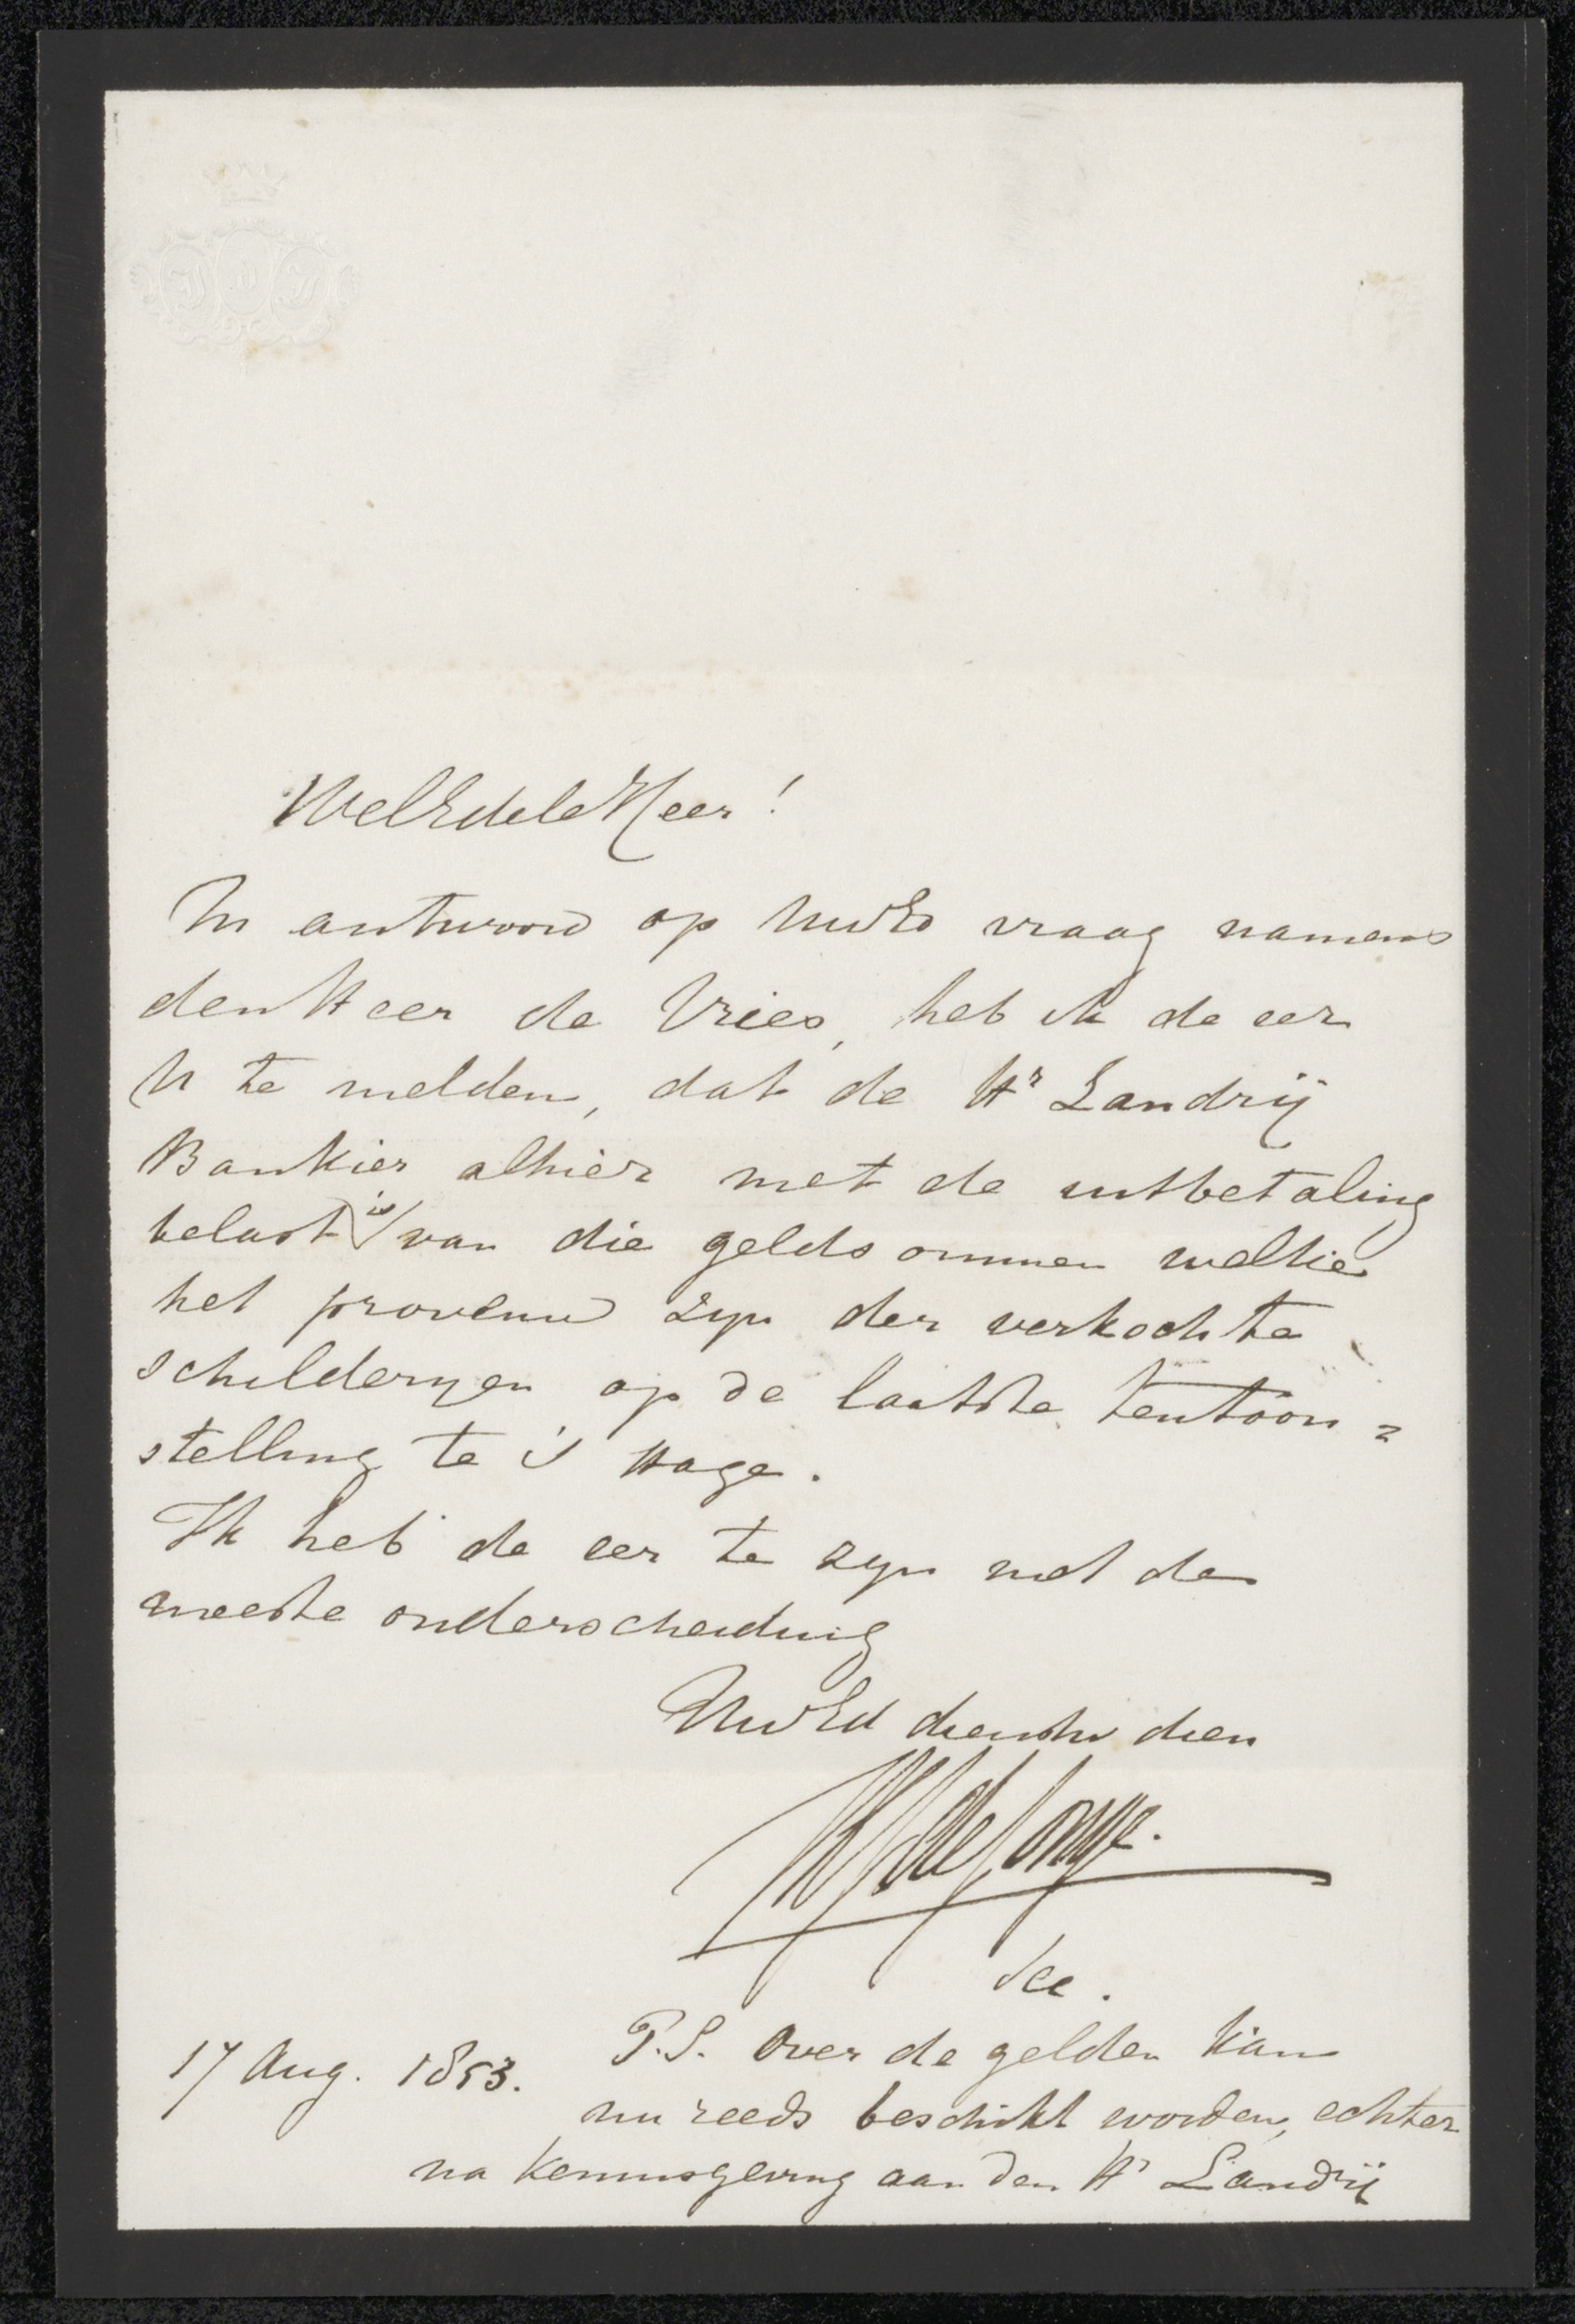 WelEdele Heer!
In antwoord op UwEd vraag namens
den Heer de Vries, heb ik de eer
U te melden, dat de Hr Landrij
Bankier alhier met de uitbetaling
belast is van die geldsommen welke
het provenu zyn der verkochte
schilderyen op de laatste tentoon=
stelling te 's Hage.
Ik heb de eer te zyn met de
meeste onderscheiding
UwEd dienstw dien
de Jonge.
17 Aug. 1853.
P.S. Over de gelden kan
nu reeds beschikt worden, echter
na kennisgeving aan den Hr Landrij